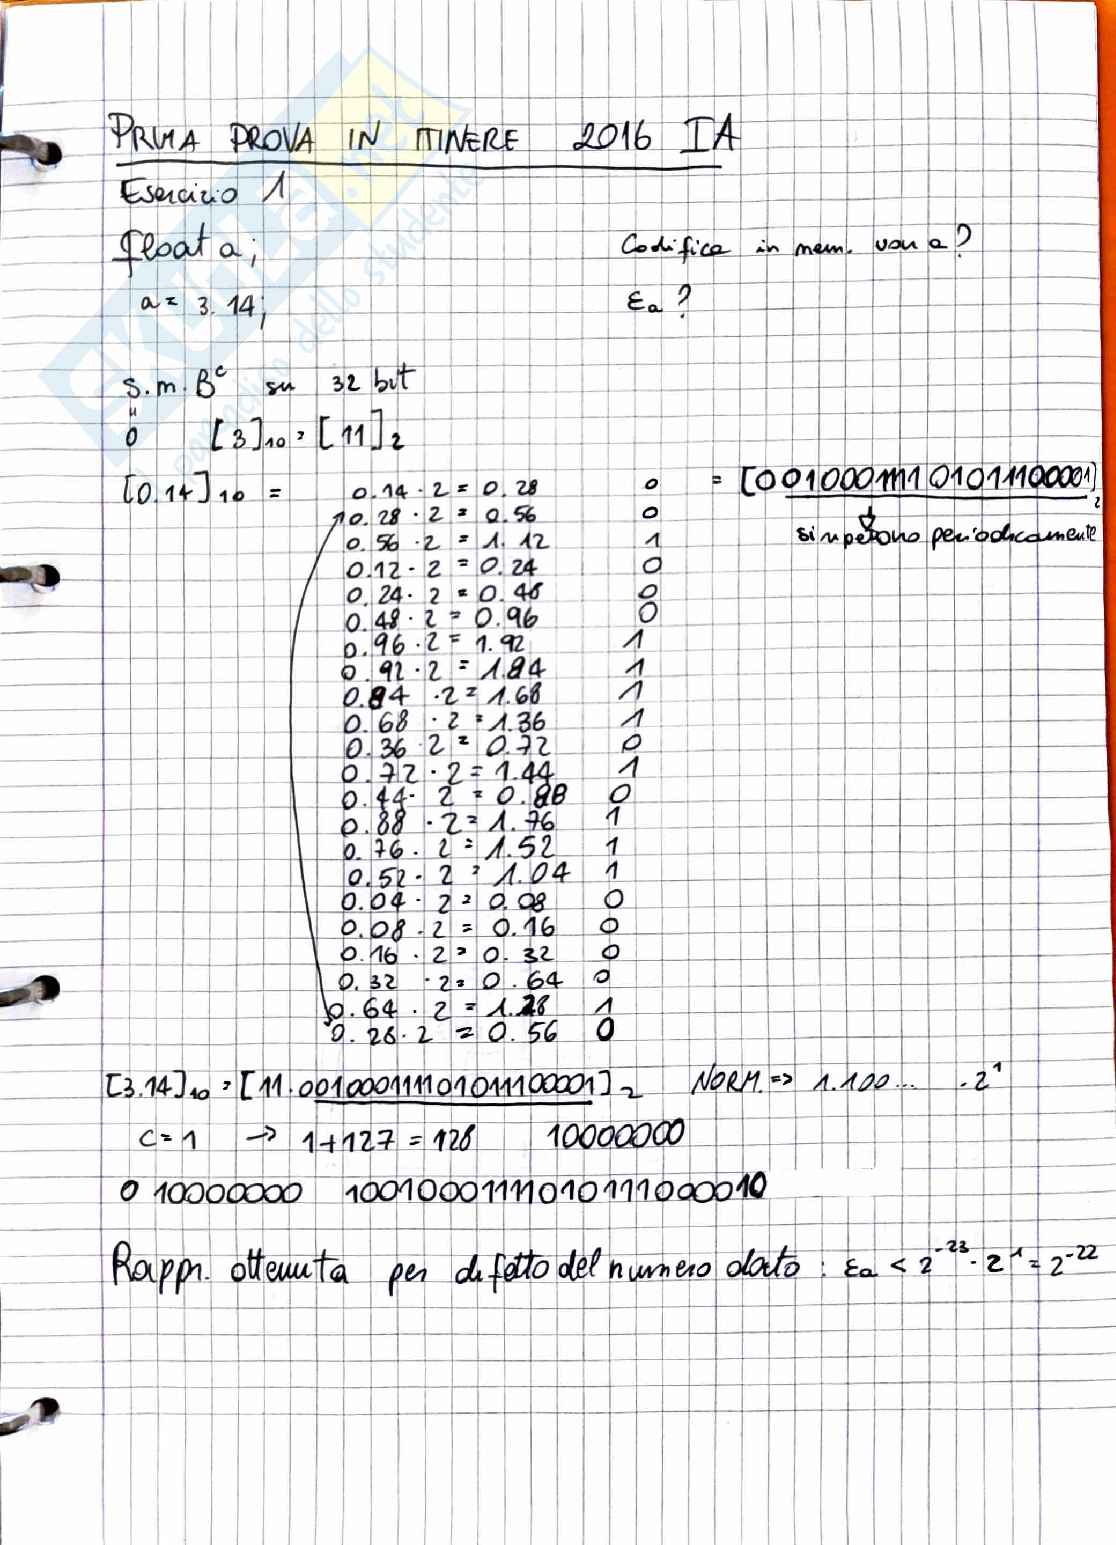 PRIMA PROVA IN ITINERE 2016 IA
Esercizio 1
float a; Codifica in mem. van a?
a = 3.14; εa ?
S.m.B^c su 32 bit
"
0 [3]10 = [11]2
[0.14]10 = 0.14 · 2 = 0.28 0 = [001000111101011100001]2
0.28 · 2 = 0.56 0 si ripetono periodicamente
0.56 · 2 = 1.12 1
0.12 · 2 = 0.24 0
0.24 · 2 = 0.48 0
0.48 · 2 = 0.96 0
0.96 · 2 = 1.92 1
0.92 · 2 = 1.84 1
0.84 · 2 = 1.68 1
0.68 · 2 = 1.36 1
0.36 · 2 = 0.72 0
0.72 · 2 = 1.44 1
0.44 · 2 = 0.88 0
0.88 · 2 = 1.76 1
0.76 · 2 = 1.52 1
0.52 · 2 = 1.04 1
0.04 · 2 = 0.08 0
0.08 · 2 = 0.16 0
0.16 · 2 = 0.32 0
0.32 · 2 = 0.64 0
0.64 · 2 = 1.28 1
0.28 · 2 = 0.56 0
[3.14]10 = [11.001000111101011100001]2 NORM. => 1.100... · 2^1
c = 1 -> 1+127 = 128 10000000
0 10000000 10010001111010111000010
Rappr. ottenuta per difetto del numero dato : εa < 2^-23 · 2^1 = 2^-22
SKUOLA.net
paradiso dello studente